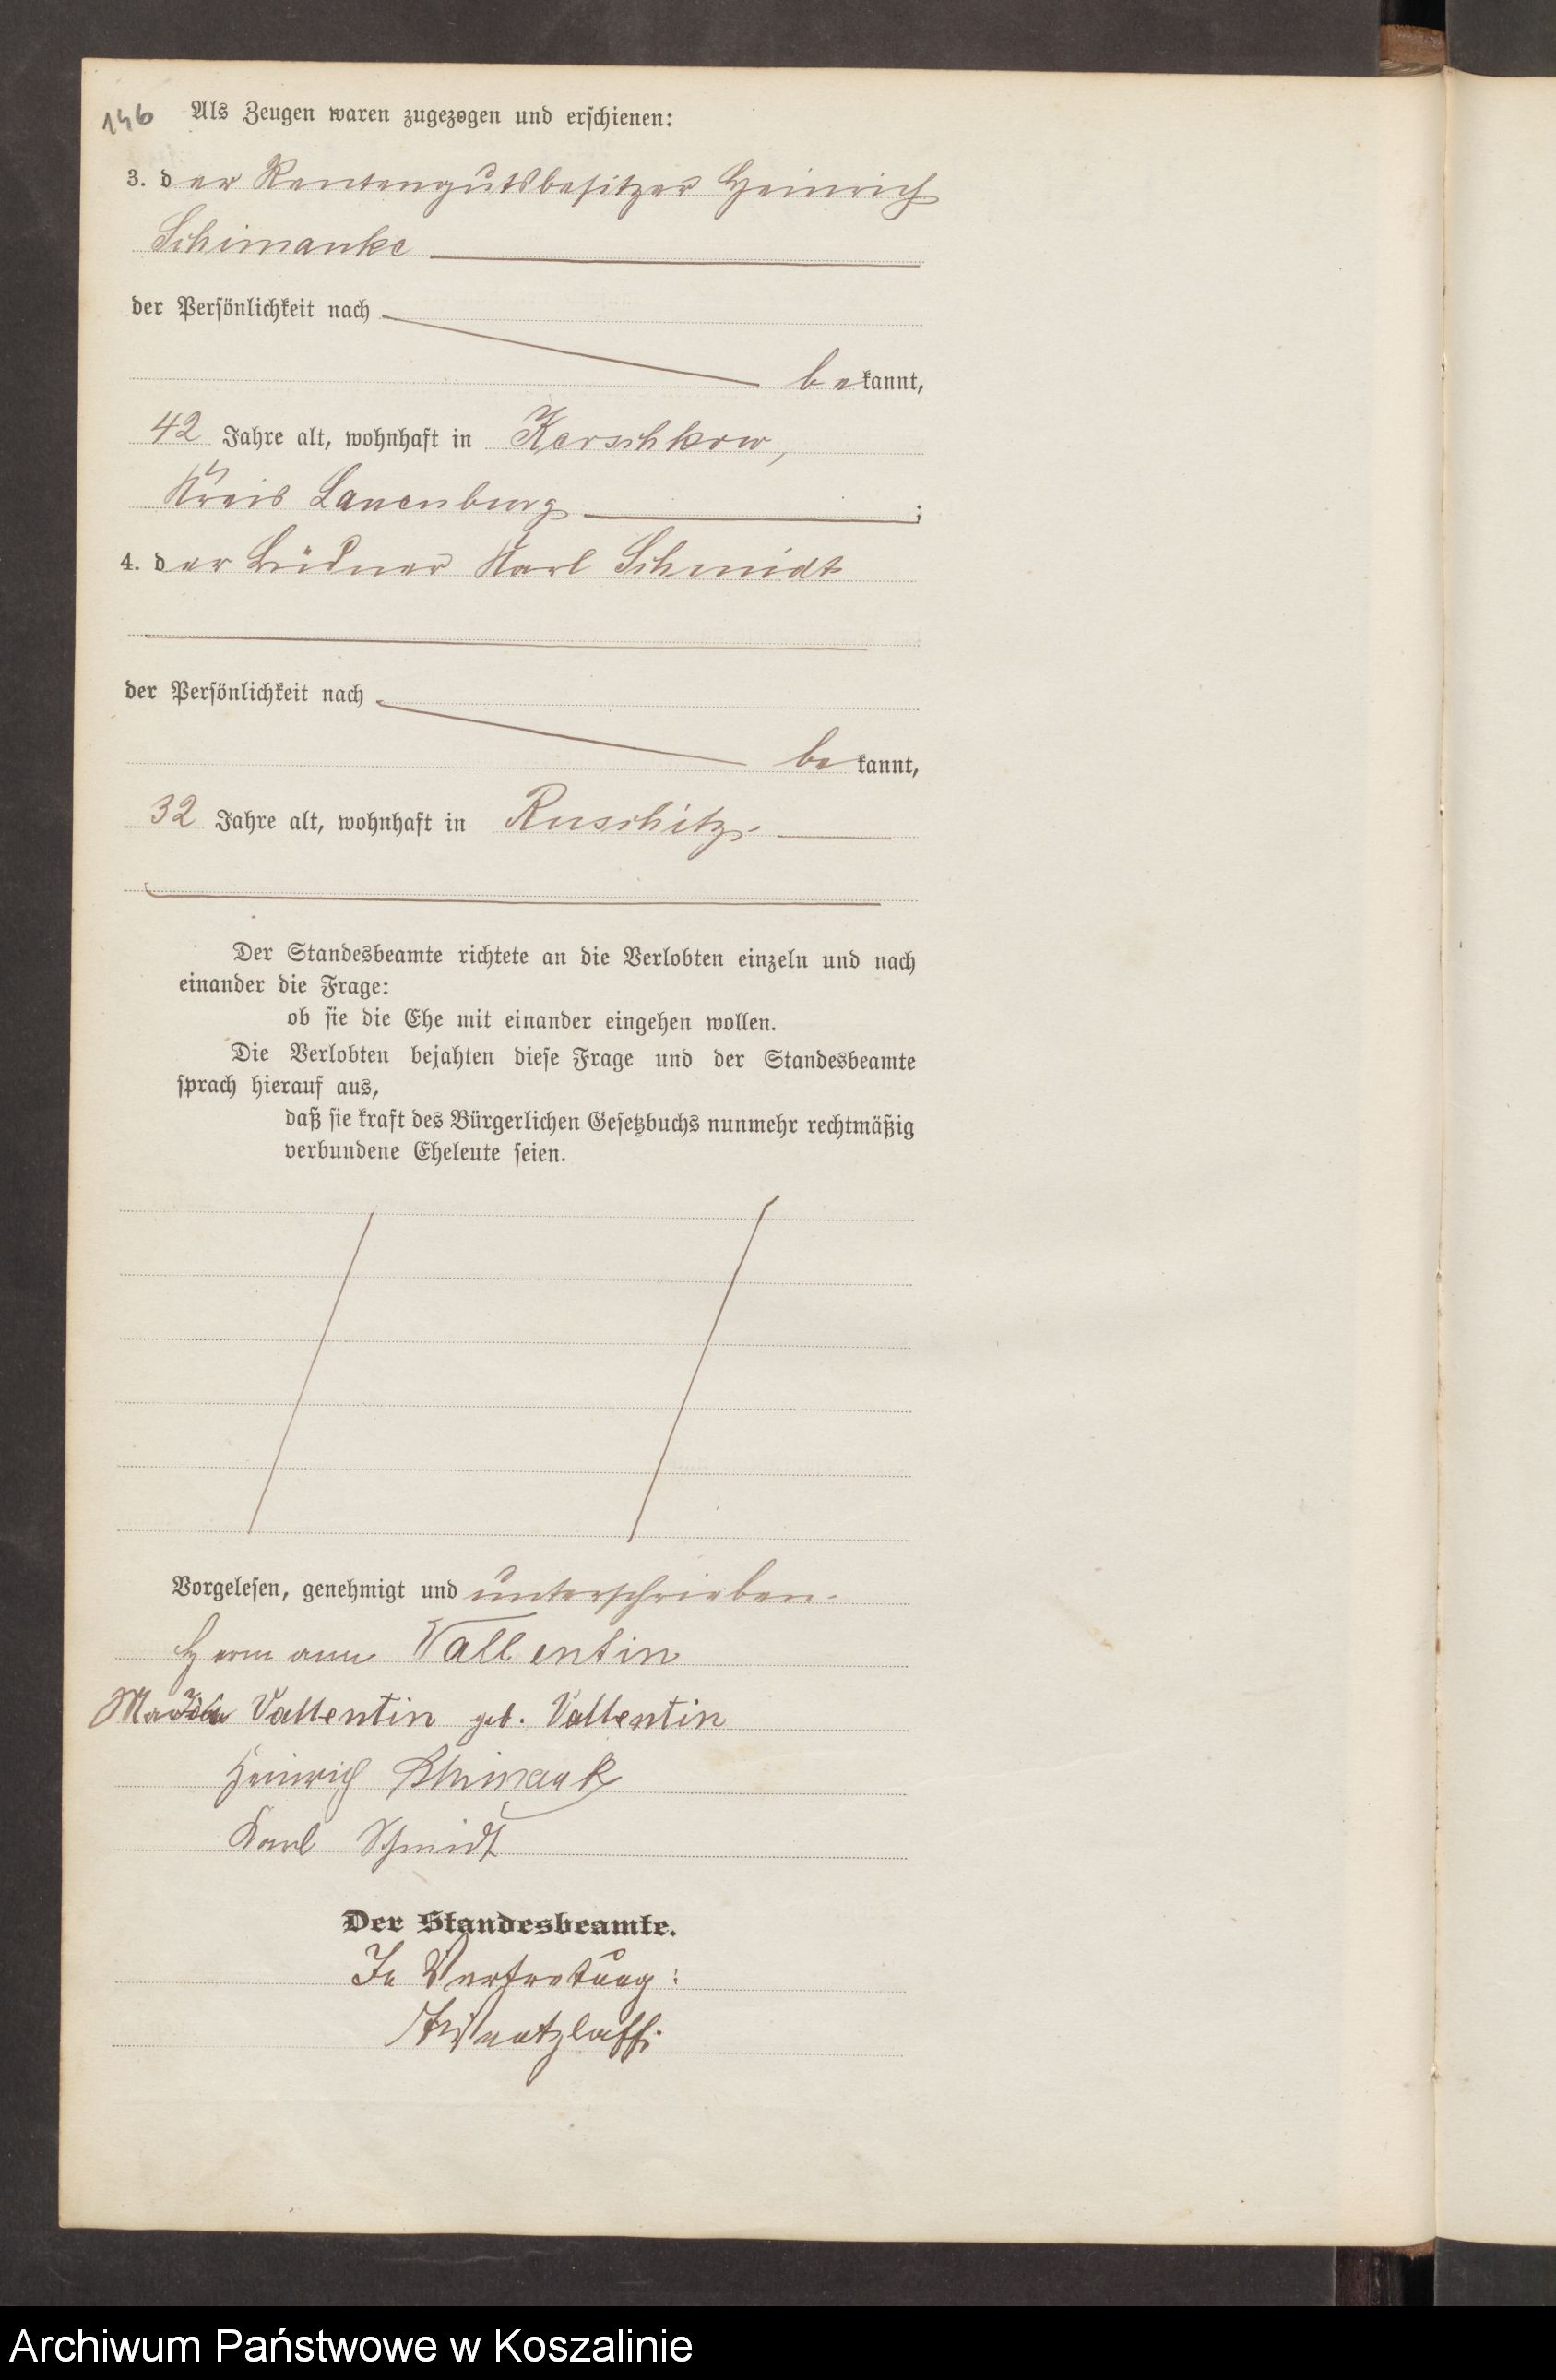 146 Als Zeugen waren zugezogen und erschienen:
3. der Rentengutsbesitzer Heinrich
Schimanke
der Persönlichkeit nach
bekannt,
42 Jahre alt, wohnhaft in Kerschkow,
Kreis Lauenburg ;
4. der Büdner Karl Schmidt
der Persönlichkeit nach
bekannt,
32 Jahre alt, wohnhaft in Ruschitz.
Der Standesbeamte richtete an die Verlobten einzeln und nach
einander die Frage:
ob sie die Ehe mit einander eingehen wollen.
Die Verlobten bejahten diese Frage und der Standesbeamte
sprach hierauf aus,
daß sie kraft des Bürgerlichen Gesetzbuchs nunmehr rechtmäßig
verbundene Eheleute seien.
Vorgelesen, genehmigt und unterschrieben.
Hermann Vallentin
Vallentin geb. Vallentin
Heinrich Schimank
Karl Schmidt
Der Standesbeamte.
In Vertretung:
Archiwum Państwowe w Koszalinie